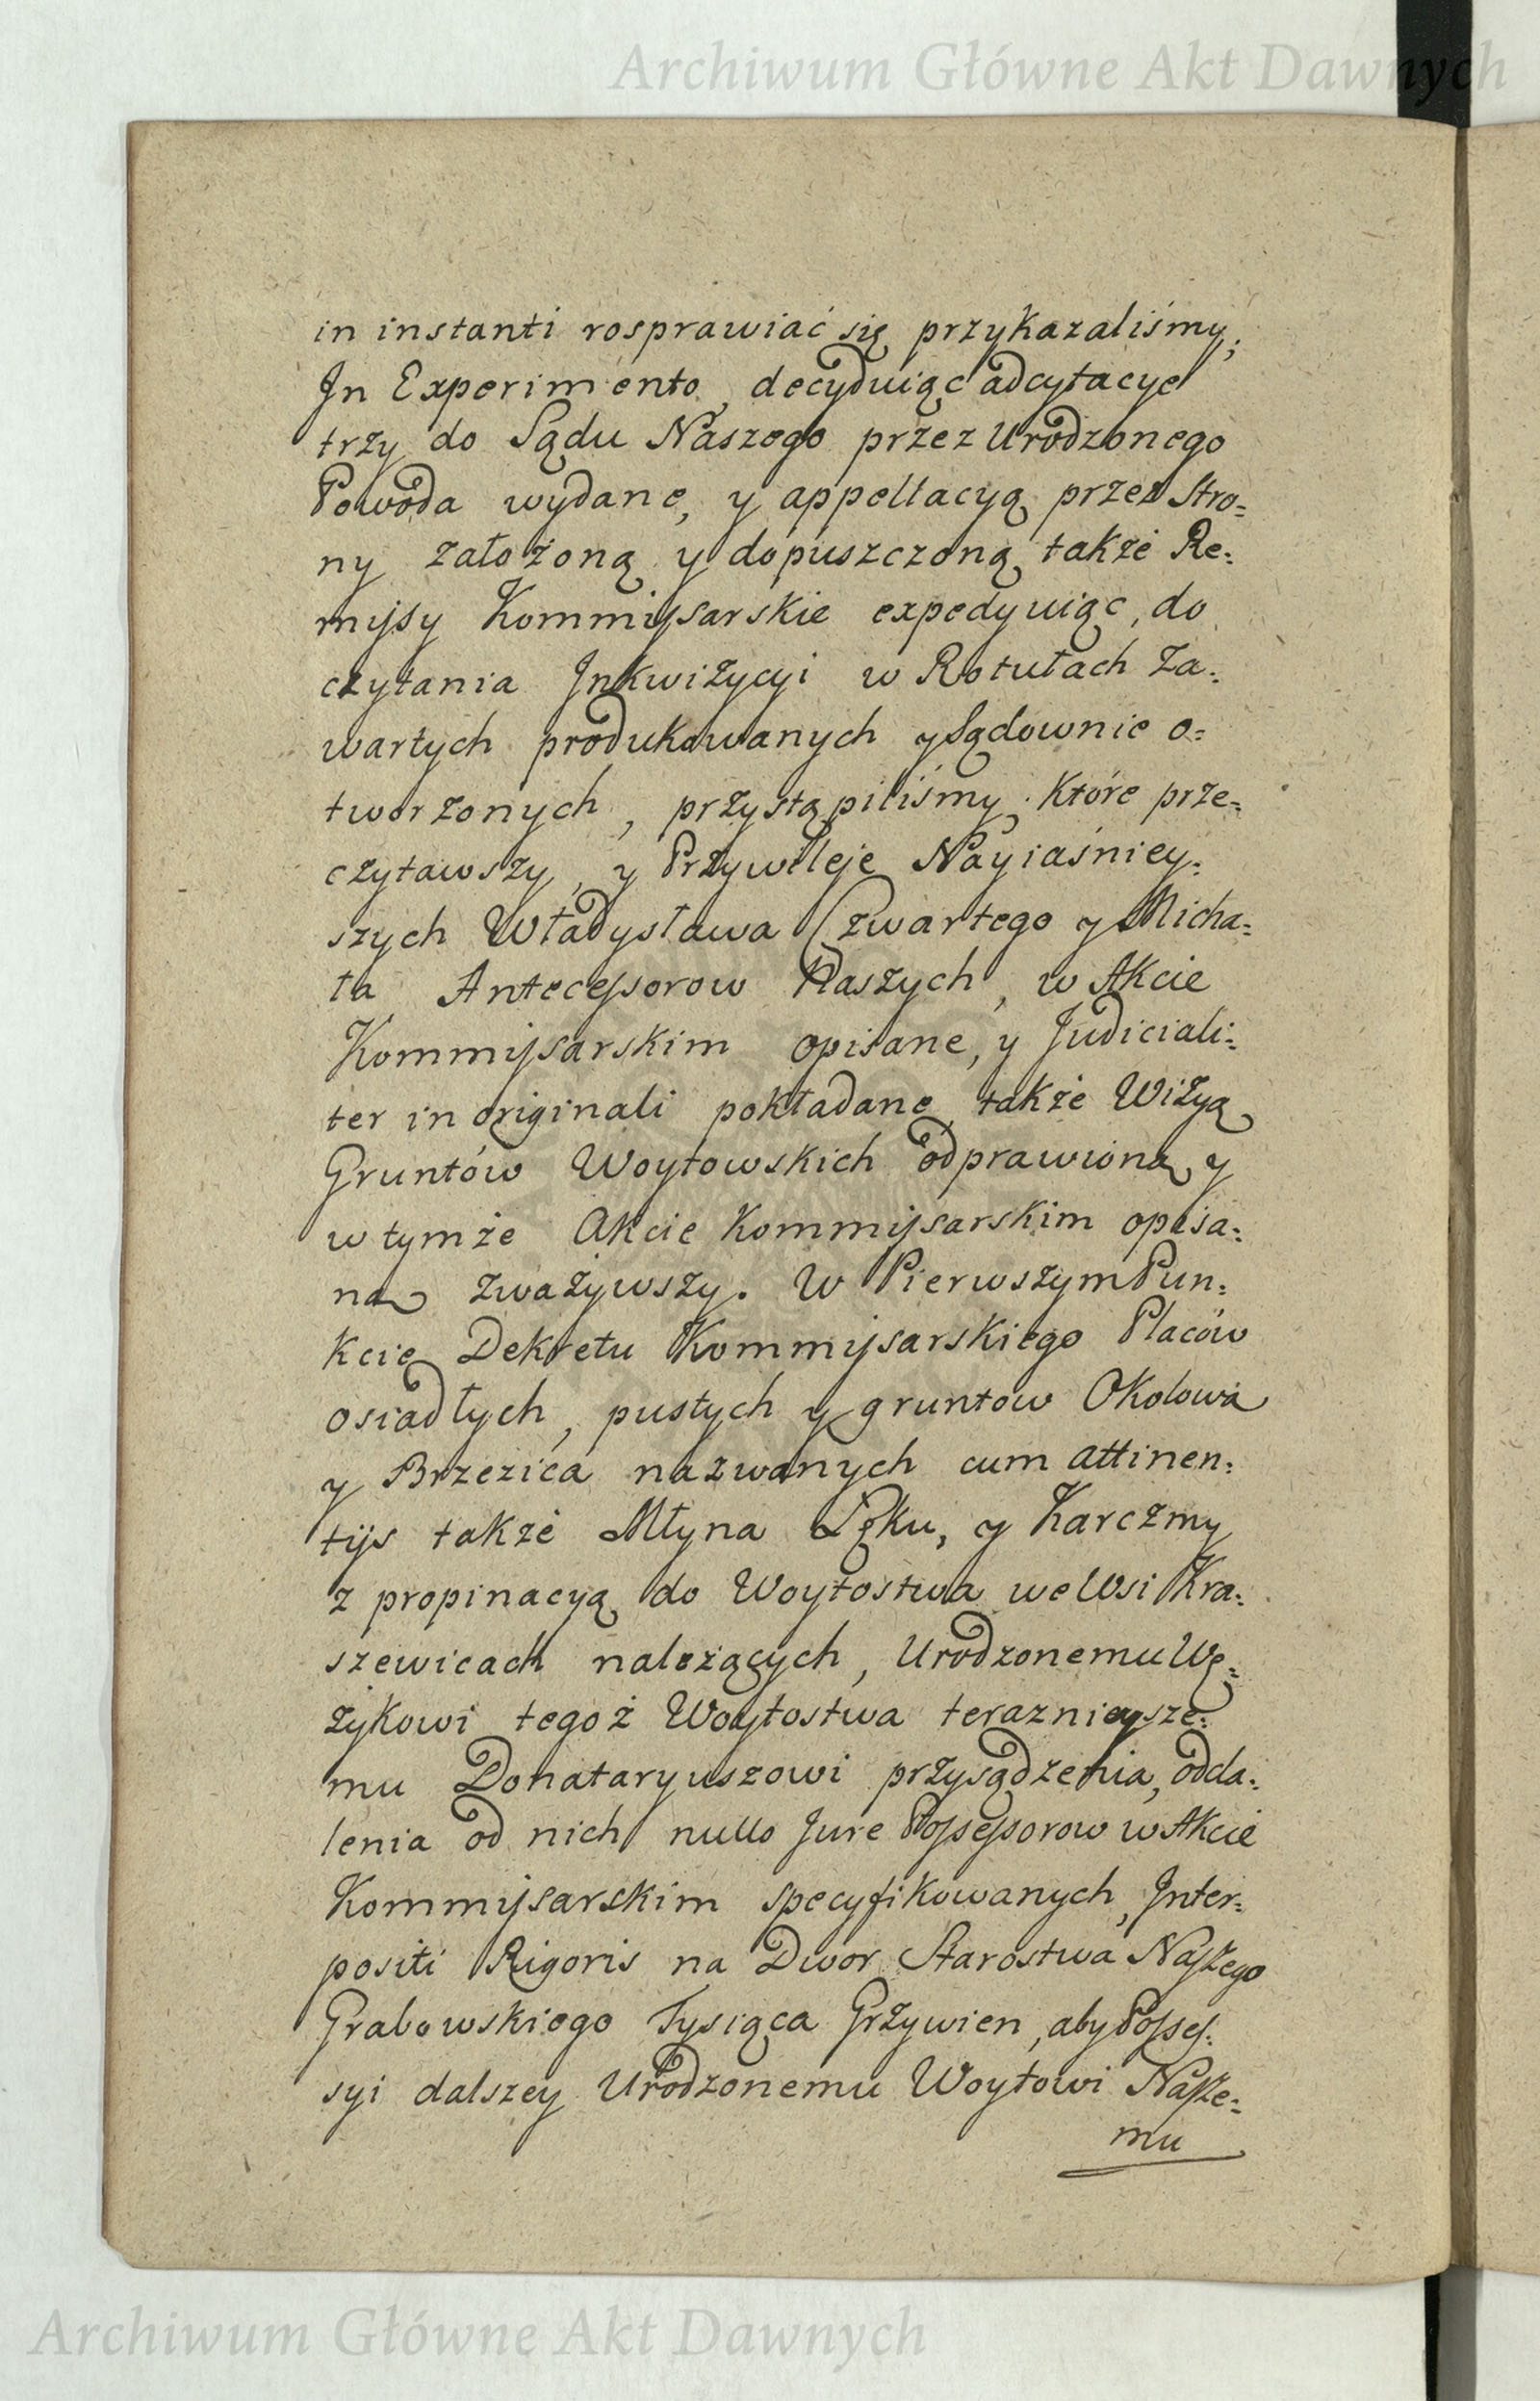 Archiwum Główne Akt Dawnych
in instanti rosprawiać się przykazaliśmy;
In Experimento, decyduiąc adcytacye
trzy do Sądu Naszego przez Urodzonego
Powoda wydane, y appellacyą przez Stro=
ny założoną y dopuszczoną, także Re=
missy Kommissarskie expedyuiąc, do
czytania Inkwizycyi w Rotułach Za=
wartych produkowanych y Sądownie o=
tworzonych, przystąpiliśmy; które prze=
czytawszy, y Przywileje Nayiaśniey=
szych Władysława Czwartego y Micha=
ła Antecessorow Naszych, w Akcie
Kommissarskim opisane, y Judiciali=
ter in originali pokładane, także Wizyą
Gruntów Woytowskich odprawioną y
w tymże Akcie Kommissarskim opisa=
ną zważywszy. W Pierwszym Pun=
kcie Dekretu Kommissarskiego Placów
osiadłych, pustych y gruntow Okolowa
y Brzezica nazwanych cum attinen=
tijs także Młyna Lęku, y Karczmy
z propinacyą do Woytostwa we Wsi Kra=
szewicach należących, Urodzonemu Wę=
żykowi tegoż Woytostwa teraznieysze=
mu Donataryuszowi przysądzenia, odda=
lenia od nich nullo Jure Possessorow w Akcie
Kommissarskim specyfikowanych, Inter=
positi Rigoris na Dwor Starostwa Naszego
Grabowskiego Tysiąca Grzywien, aby Posses=
syi dalszey Urodzonemu Woytowi Nasze=
mu
Archiwum Główne Akt Dawnych